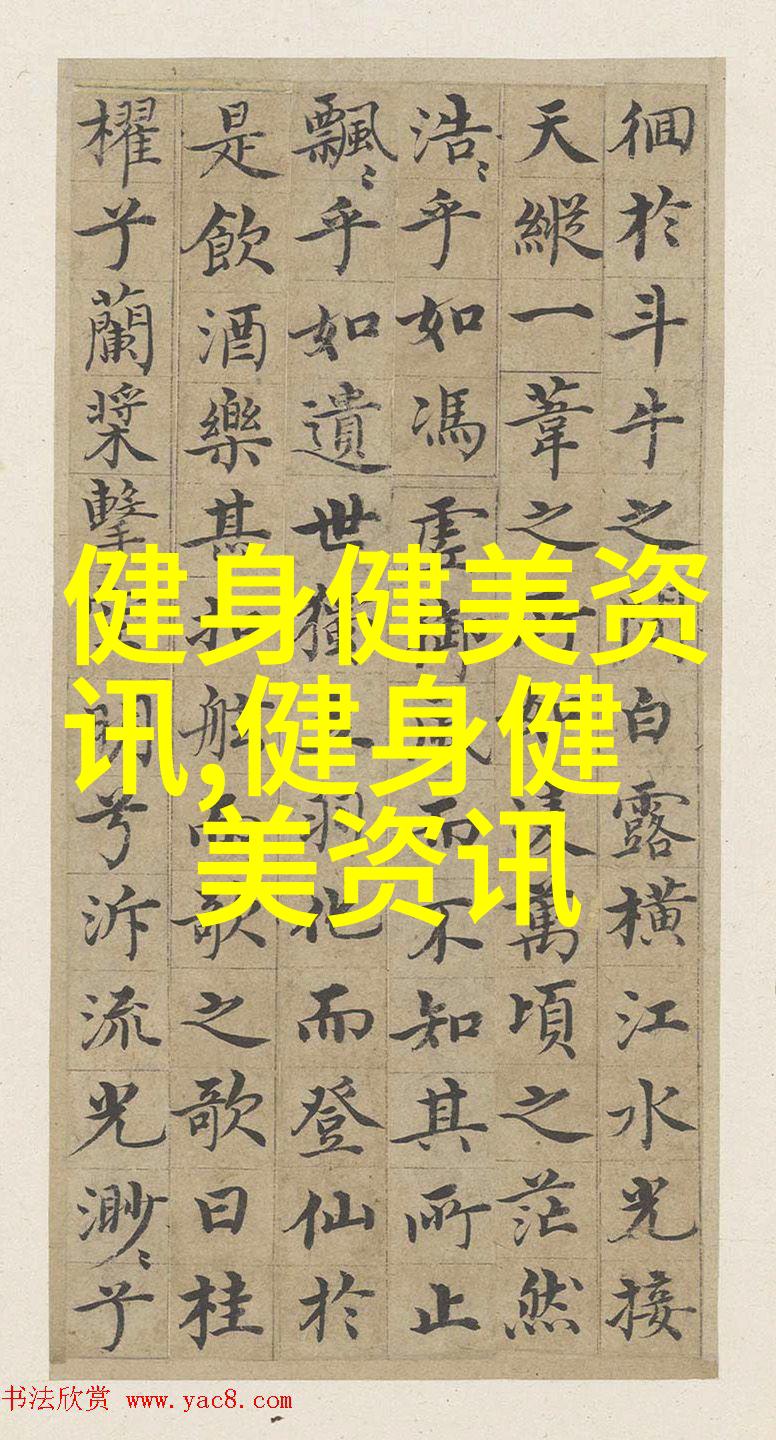 徊於斗牛之間白露橫江水光接
天縱一葦之所如凌萬頃之茫然
浩〻乎如馮虛御風而不知其所止
飄〻乎如遺世獨立羽化而登仙於
是飲酒樂甚扣舷而歌之歌曰桂
櫂兮蘭槳擊空明兮泝流光渺〻兮
健身健美资
讯,健身健
美资讯
书法欣赏 www.yac8.com